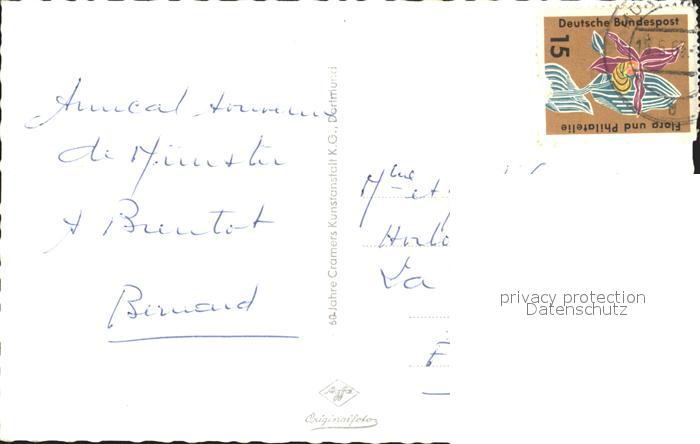 Amical souvenir
de Münster
A Bientot
Bernard
60 Jahre Cramers Kunstanstalt K.G., Dortmund
Deutsche Bundespost
15
Flora und Philatelie
Mme et
Horlo
La
F
privacy protection
Datenschutz
Originalfoto